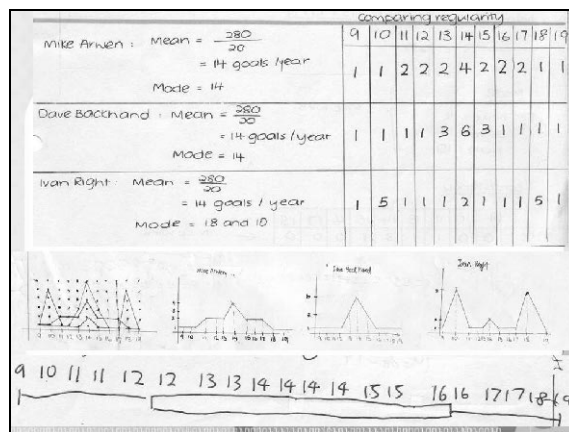 comparing regularity
9 10 11 12 13 14 15 16 17 18 19
Mike Arwen : Mean = 280
20
= 14 goals / year
Mode = 14
1 1 2 2 2 4 2 2 2 1 1
Dave Backhand : Mean = 280
20
= 14 goals / year
Mode = 14
1 1 1 1 3 6 3 1 1 1 1
Ivan Right : Mean = 280
20
= 14 goals / year
Mode = 18 and 10
1 5 1 1 1 2 1 1 1 5 1
Mike Arwen
Dave Backhand
Ivan Right
9 10 11 11 12 12 13 13 14 14 14 14 15 15 16 16 17 17 18 19